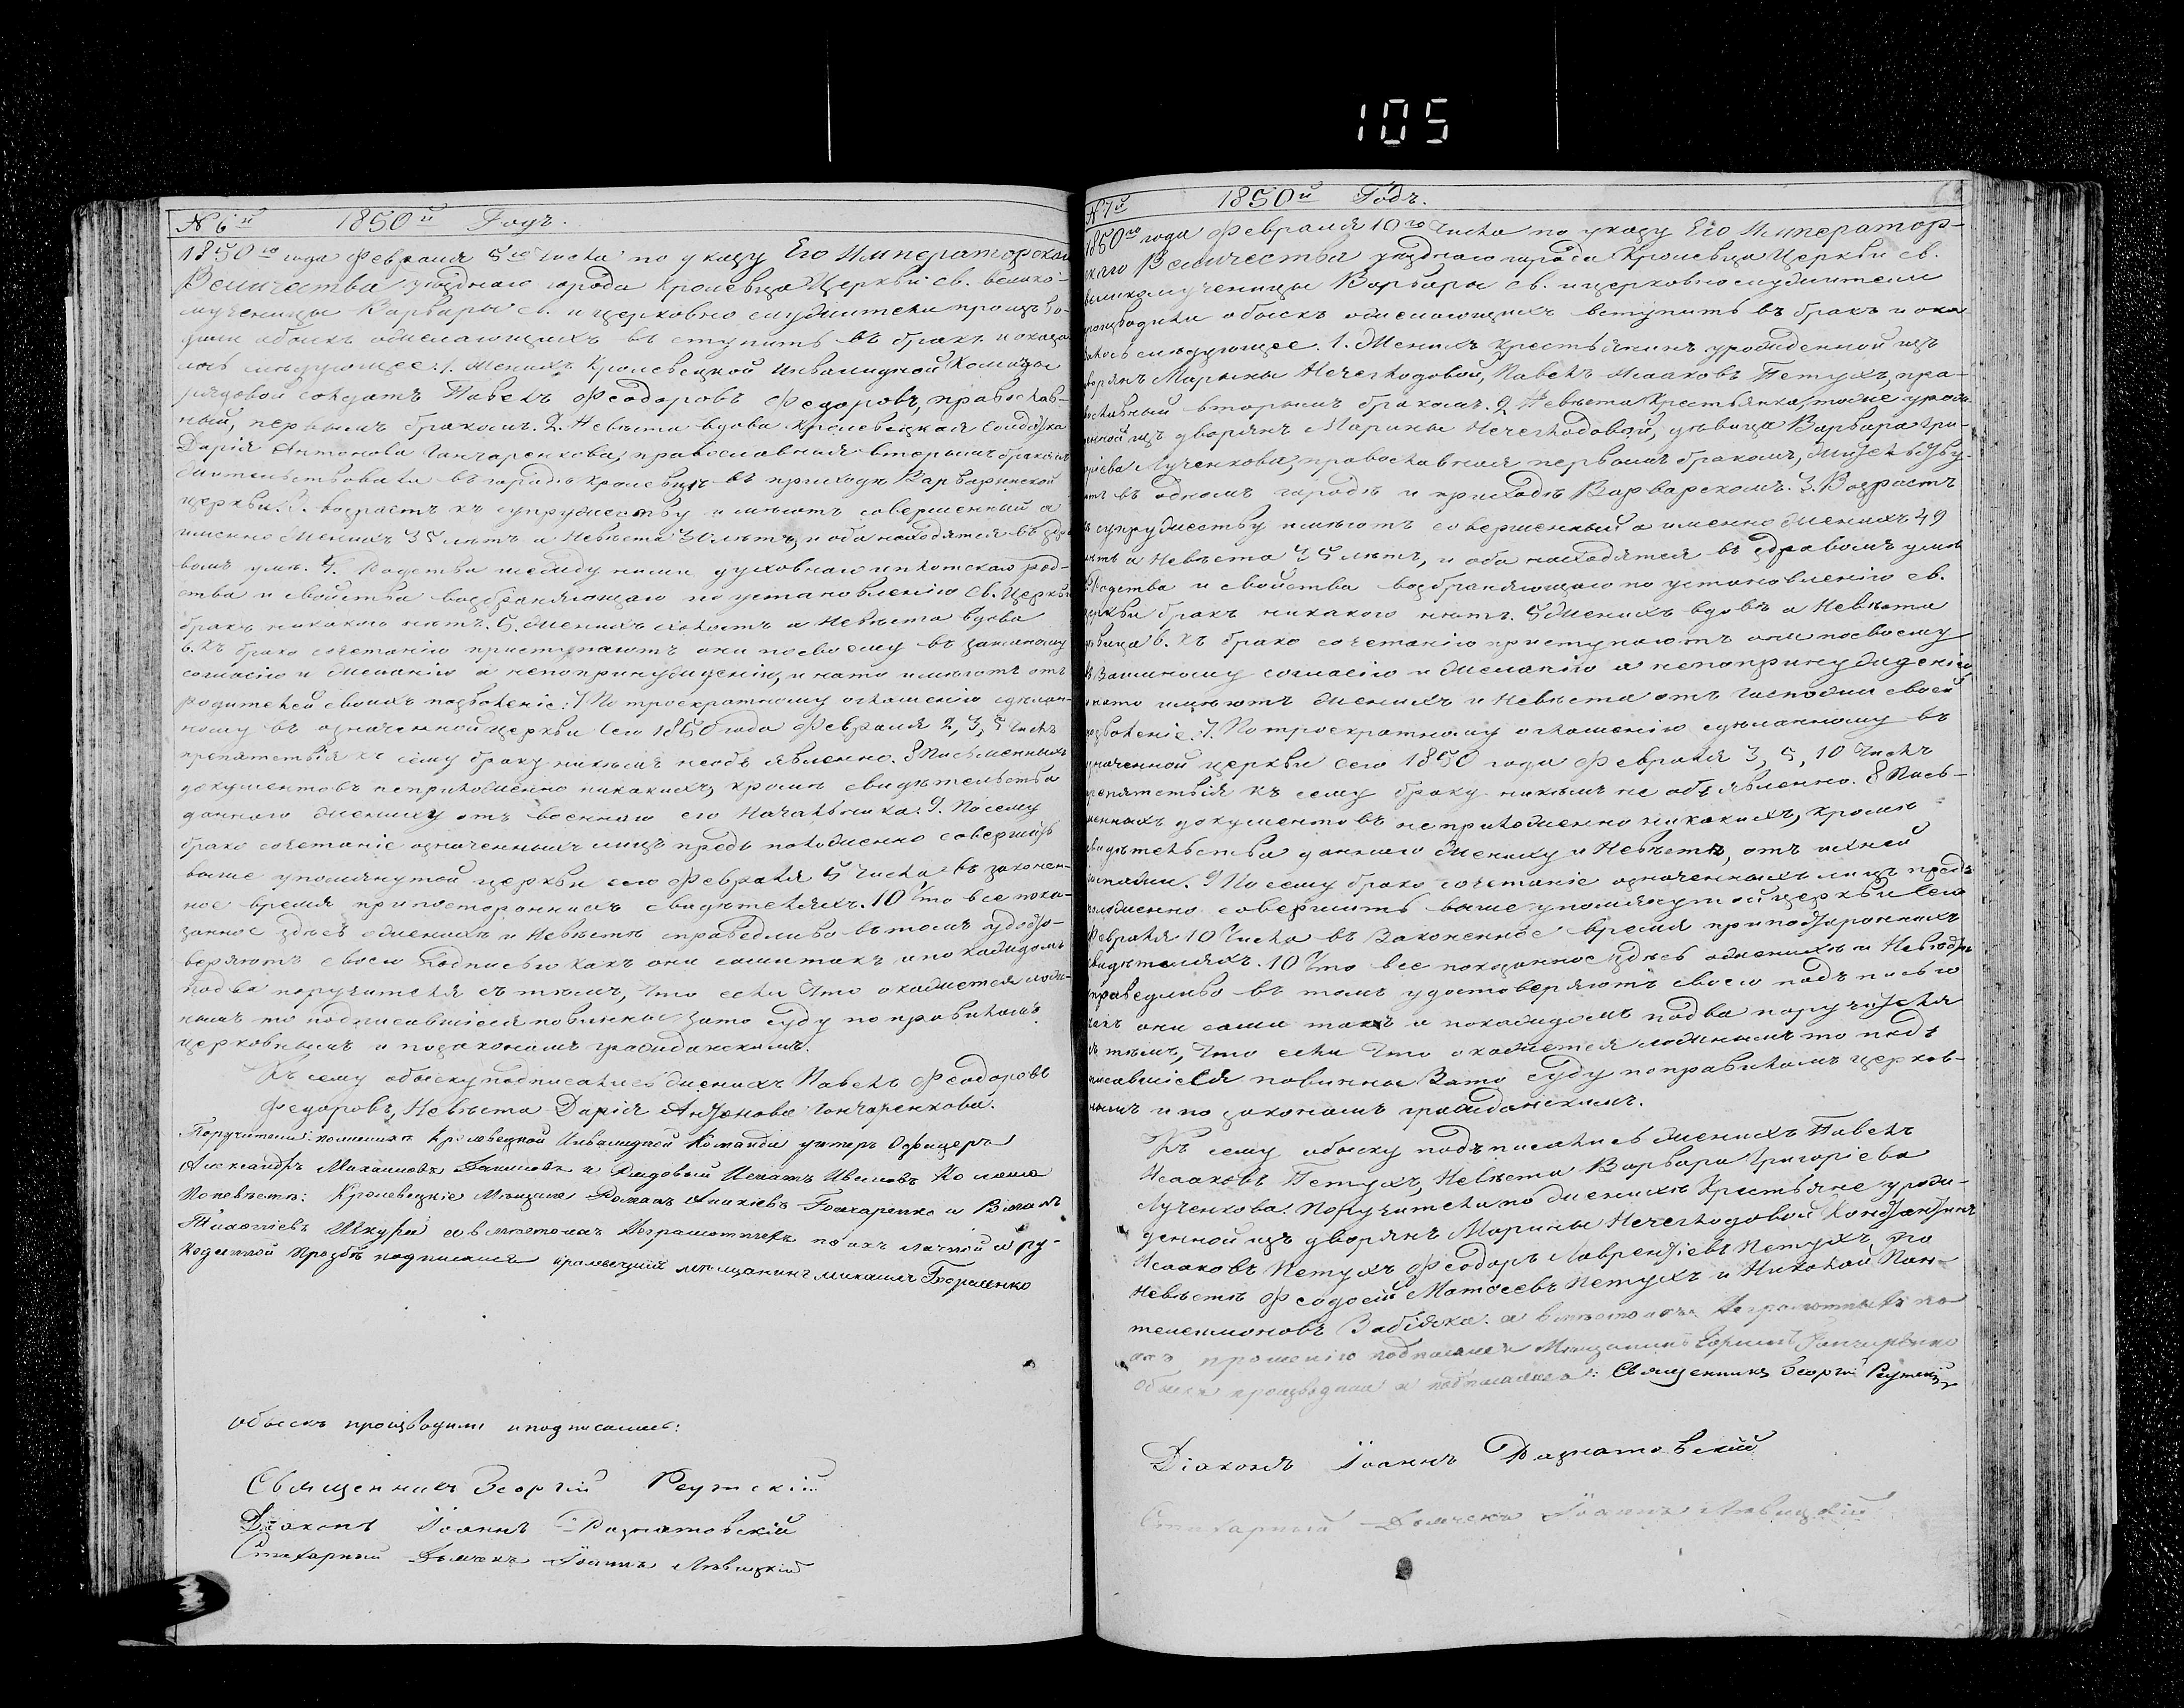 105
№ 6й 1850й Годъ.
1850го года Февраля 5го числа по указу Его Императорскаго
Величества уезднаго города Кролевца Церкви св. велико-
мученицы Варвары св. и церковно служители производи-
ли обыскъ о желающихъ вступить въ бракъ и оказа-
лось следующее: 1. Женихъ Кролевецкой Инвалидной Команды
рядовой солдатъ Павелъ Феодоровъ Федоровъ, православ-
ный, первымъ бракомъ. 2. Невѣста вдова Кролевецкая солдатка
Дарія Антонова Ганчаренкова, православная вторымъ бракомъ
жительствовали въ городѣ Кролевцѣ въ приходѣ Варваринской
церкви. 3. возрастъ къ супружеству имѣютъ совершенный а
именно женихъ 35 лѣтъ а Невѣста 30 лѣтъ, и оба находятся въ здра-
вомъ умѣ. 4. Родства между ними духовнаго и плотскаго род-
ства и свойства возбраняющаго по установленію св. Церкви
бракъ никакого нѣтъ. 5. Женихъ холостъ а Невѣста вдова
6. Къ брако сочетанію приступаютъ они по своему въ заимному
согласію и желанію а не по принужденію, и на то имѣютъ отъ
родителей своихъ позволеніе: 7 По троекратному оглашенію сдѣлан-
ному въ означенной церкви сего 1850 года Февраля 2, 3, 5 числъ
препятствія къ сему браку никѣмъ необъявленно. 8 Письменныхъ
документовъ неприложенно никакихъ, кромѣ свидѣтельства
даннаго жениху отъ военнаго его Начальника. 9. По сему
брако сочетаніе означенныхъ лицъ предположенно совершить
выше упомянутой церкви сего Февраля 5 числа въ законен-
ное время при постороннихъ свидѣтеляхъ. 10 Что все пока-
занное здѣсь о женихѣ и Невѣстѣ справедливо въ томъ удосто-
веряютъ своею подписью какъ они сами такъ и по каждомъ
по два поручителя съ тѣмъ, что если что окажется лож-
нымъ то подписавшіеся повинны за то суду по правиламъ
церковнымъ и по законамъ гражданскимъ.
Къ сему обыску подписались женихъ Павелъ Феодоровъ
Федоровъ, Невѣста Дарія Антонова Ганчаренкова.
Поручители: по женихѣ Кролевецкой Инвалидной Команды унтеръ Офицеръ
Александръ Михаиловъ Даниловъ и Рядовый Игнатъ Ивановъ
По невѣстѣ: Кролевецкіе Мѣщане Романъ Гончаренко и
Шкура а вмѣсто ихъ неграмотныхъ по ихъ личной и ру-
кодатной прозбѣ подписался кролевецкій мѣщанинъ Михаилъ
Обыскъ производили и подписались:
Священникъ Георгій Реутскій
Діаконъ Іоаннъ Разнатовскій
Стихарный Дьячекъ Іоаннъ Лѣвицкій
№ 7й 1850й Годъ.
1850го года Февраля 10го числа по указу Его Император-
скаго Величества уезднаго города Кролевца Церкви св.
великомученицы Варвары св. и церковнослужители
производили обыскъ о желающихъ вступить въ бракъ и ока-
залось слѣдующее. 1. Женихъ крестьянинъ урожденной изъ
дворянъ Марины Нечеглодовой, Павелъ Исааковъ Петухъ, пра-
вославный вторымъ бракомъ. 2 Невѣста Крестьянка, тоже урож-
денной изъ дворянъ Марины Нечеглодовой, дѣвица Варвара Гри-
горіева Лученкова, православная первымъ бракомъ, жительству-
ютъ въ одномъ городѣ и приходѣ Варварскомъ. 3. Возрастъ
къ супружеству имѣютъ совершенный а именно женихъ 49
лѣтъ а Невѣста 35 лѣтъ, и оба находятся въ здравомъ умѣ
4 Родства и свойства возбраняющаго по установленію св.
церкви бракъ никакого нѣтъ. 5 Женихъ вдовъ а Невѣста
дѣвица 6. Къ брако сочетанію приступаютъ они по своему
въ Заимному согласію и желанію а не по принужденію
и на то имѣютъ женихъ и Невѣста отъ господжи своей
позволеніе: 7. По троекратному оглашенію сдѣланному въ
означенной церкви сего 1850 года Февраля 3, 5, 10 числъ
препятствія къ сему браку никѣмъ не объявленно. 8 Пись-
менныхъ документовъ неприложенно никакихъ, кромѣ
свидѣтельства даннаго жениху и Невѣстѣ, отъ ихней
господжи. 9 По сему брако сочетаніе означенныхъ лицъ пред-
положенно совершить выше упомянутой церкви сего
Февраля 10 числа въ Законенное время при постороннихъ
свидѣтеляхъ. 10 Что все показанное здѣсь о женихѣ и Невѣстѣ
справедливо въ томъ удостоверяютъ своею подъписью
какъ они сами такъ и по каждомъ по два поручителя
съ тѣмъ, что если что окажется ложнымъ то подъ
писавшіеся повинны За то суду по правиламъ церков-
нымъ и по законамъ гражданскимъ.
Къ сему обыску подъписались женихъ Павелъ
Исааковъ Петухъ, Невѣста Варвара Григоріева
Лученкова. Поручители по женихѣ Крестьяне урож-
денной изъ дворянъ Марины Нечеглодовой Константинъ
Исааковъ Петухъ Феодоръ Лаврентіевъ Петухъ, по
Невѣстѣ Федосій Матѳеевъ Петухъ и Николай Пан-
телеимоновъ Забіяка. а вмѣсто ихъ неграмотныхъ по
ихъ прошенію подписался Мѣщанинъ Гончаренко
Обыскъ производили и подписались: Священникъ Георгій Реутскій
Діаконъ Іоаннъ Разнатовскій
Стихарный Дьячекъ Іоаннъ Лѣвицкій